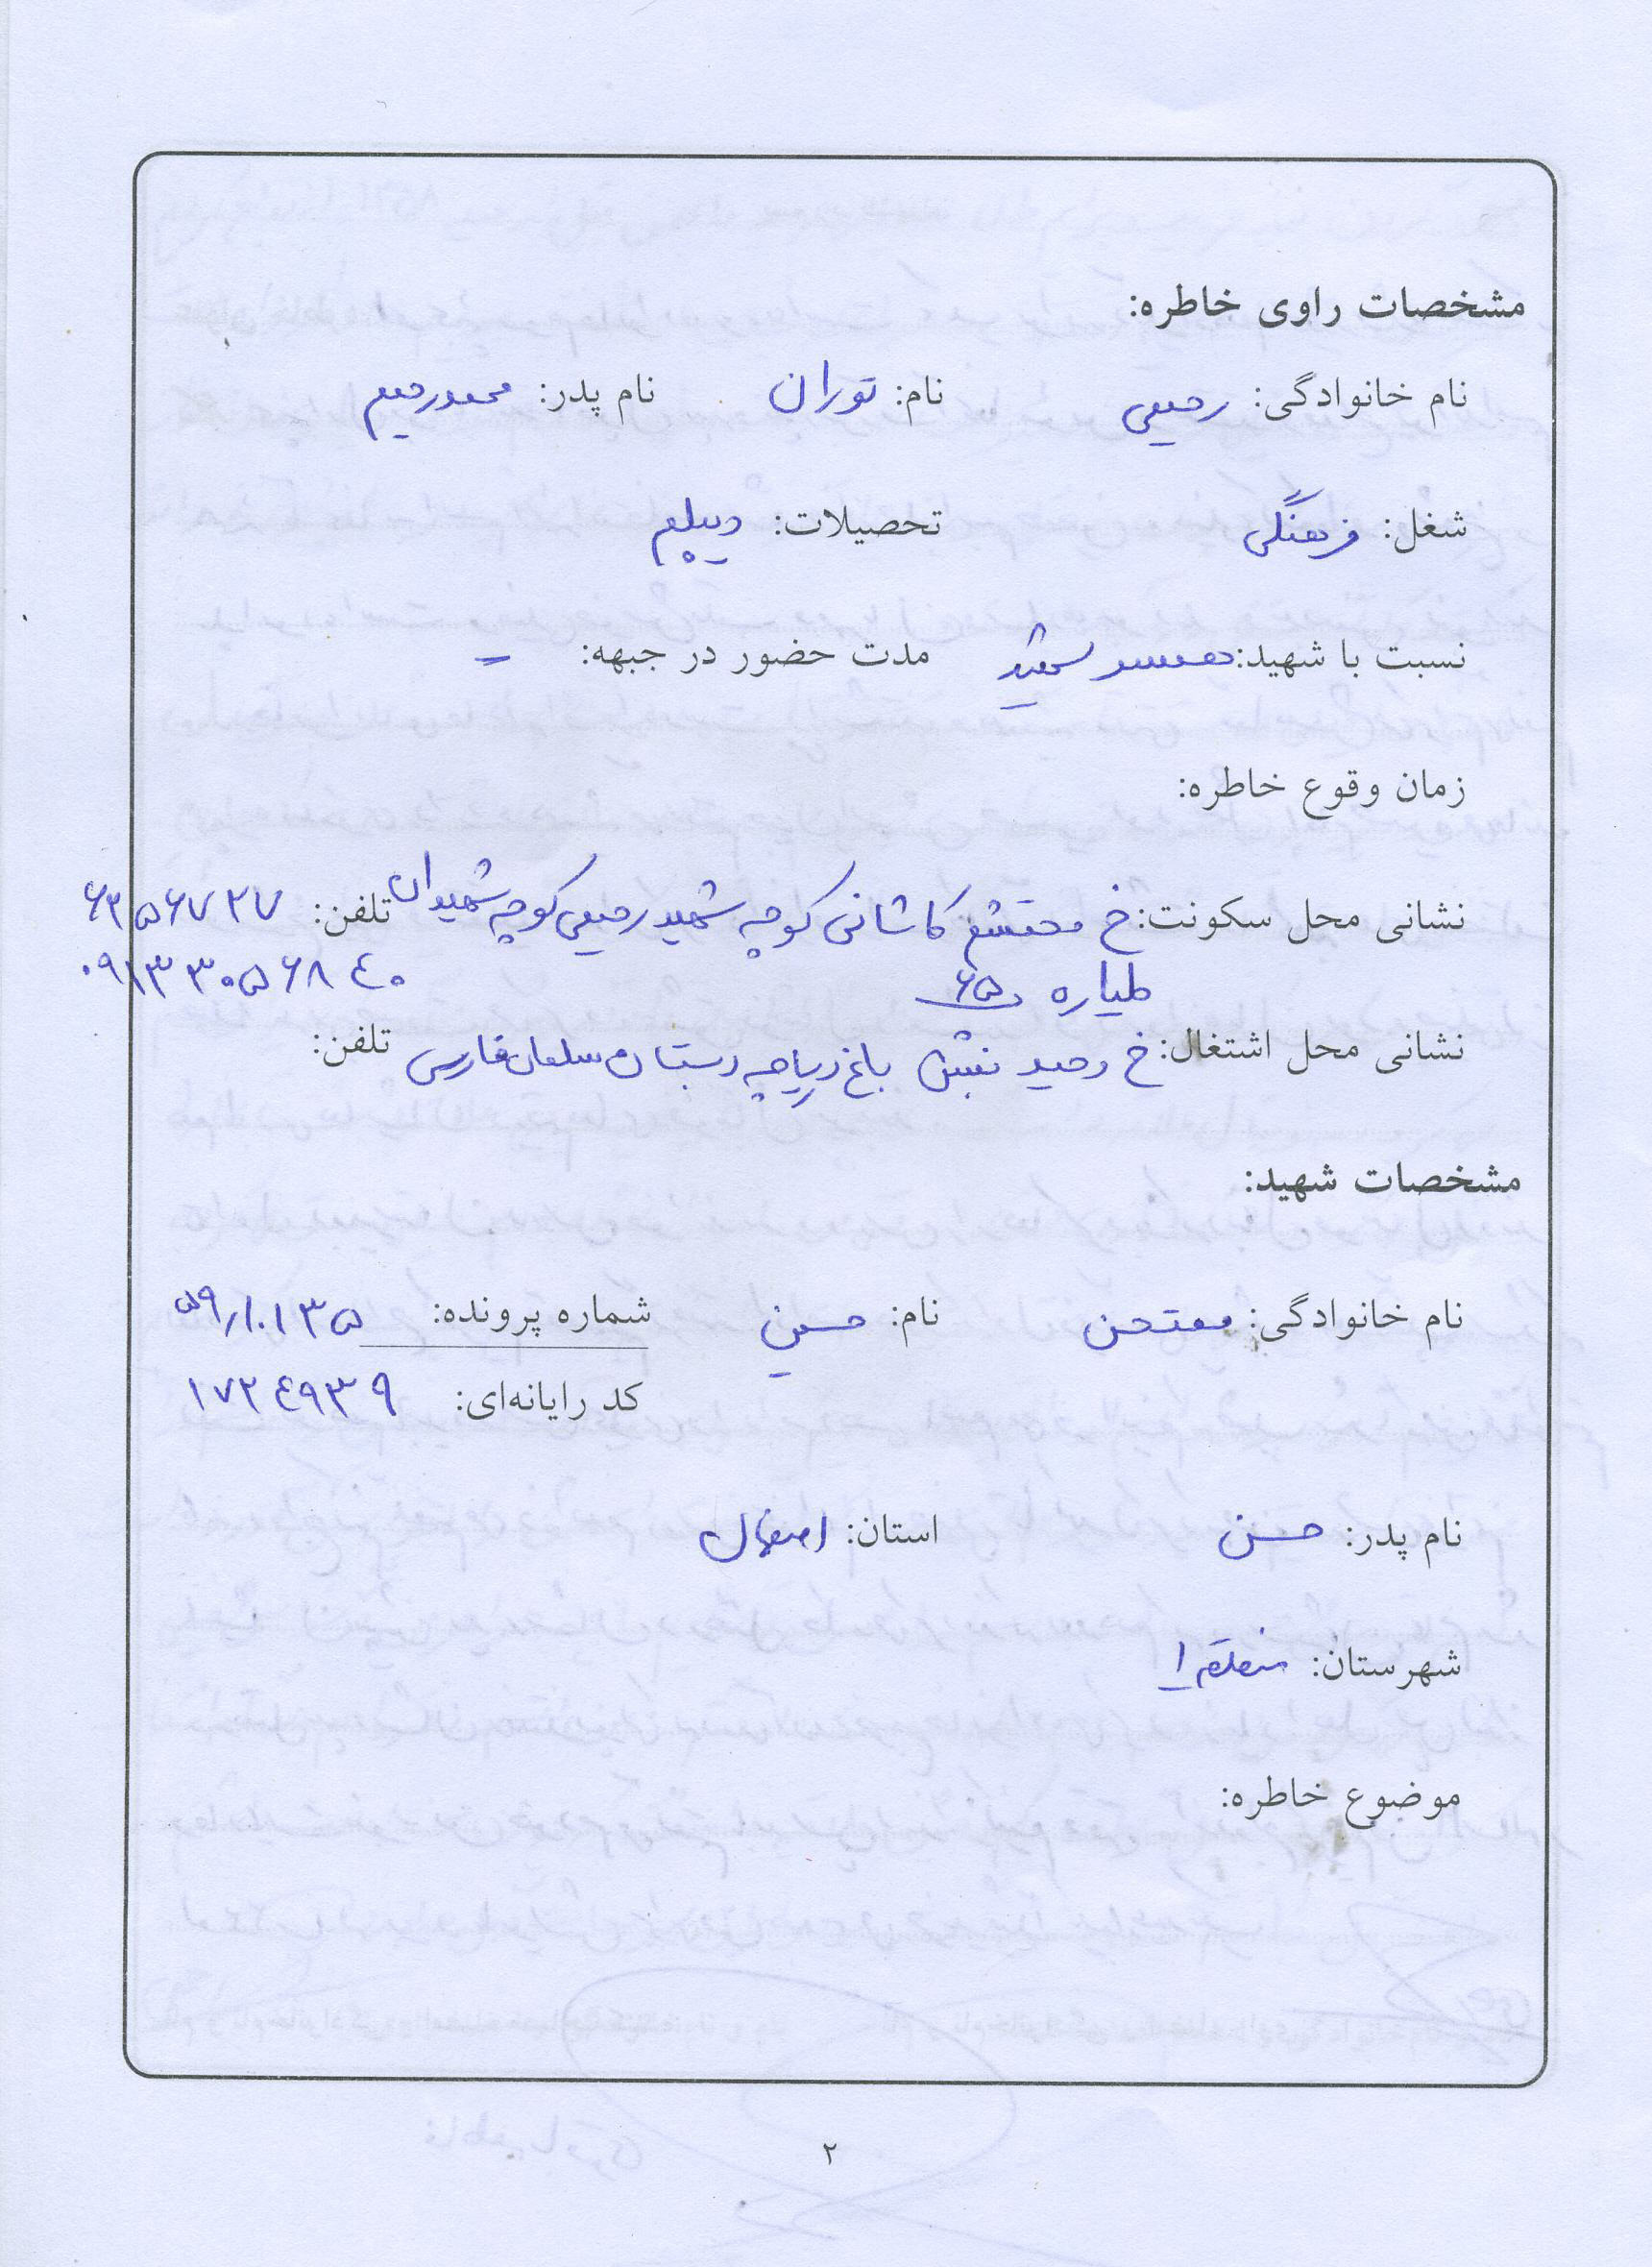 مشخصات راوی خاطره:
نام خانوادگی: رحیمی نام: توران نام پدر: محمدرحیم
شغل: فرهنگی تحصیلات: دیپلم
نسبت با شهید: همسر شهید مدت حضور در جبهه: –
زمان وقوع خاطره:
نشانی محل سکونت: خ محتشم کاشانی کوچه شهید رحیمی کوچه شهیدان تلفن: ۶۲۵۶۷۲۷
پلاک ۶۵ ۰۹۱۳۳۰۵۶۸۴۰
نشانی محل اشتغال: خ وحید نبش باغ دریاچه دبستان سلمان فارسی تلفن:
مشخصات شهید:
نام خانوادگی: ممتحن نام: حسین شماره پرونده: ۵۹/۱۰۱۳۵
کد رایانه‌ای: ۱۷۲۴۹۳۹
نام پدر: حسن استان: اصفهان
شهرستان: منطقه ۱
موضوع خاطره:
۲